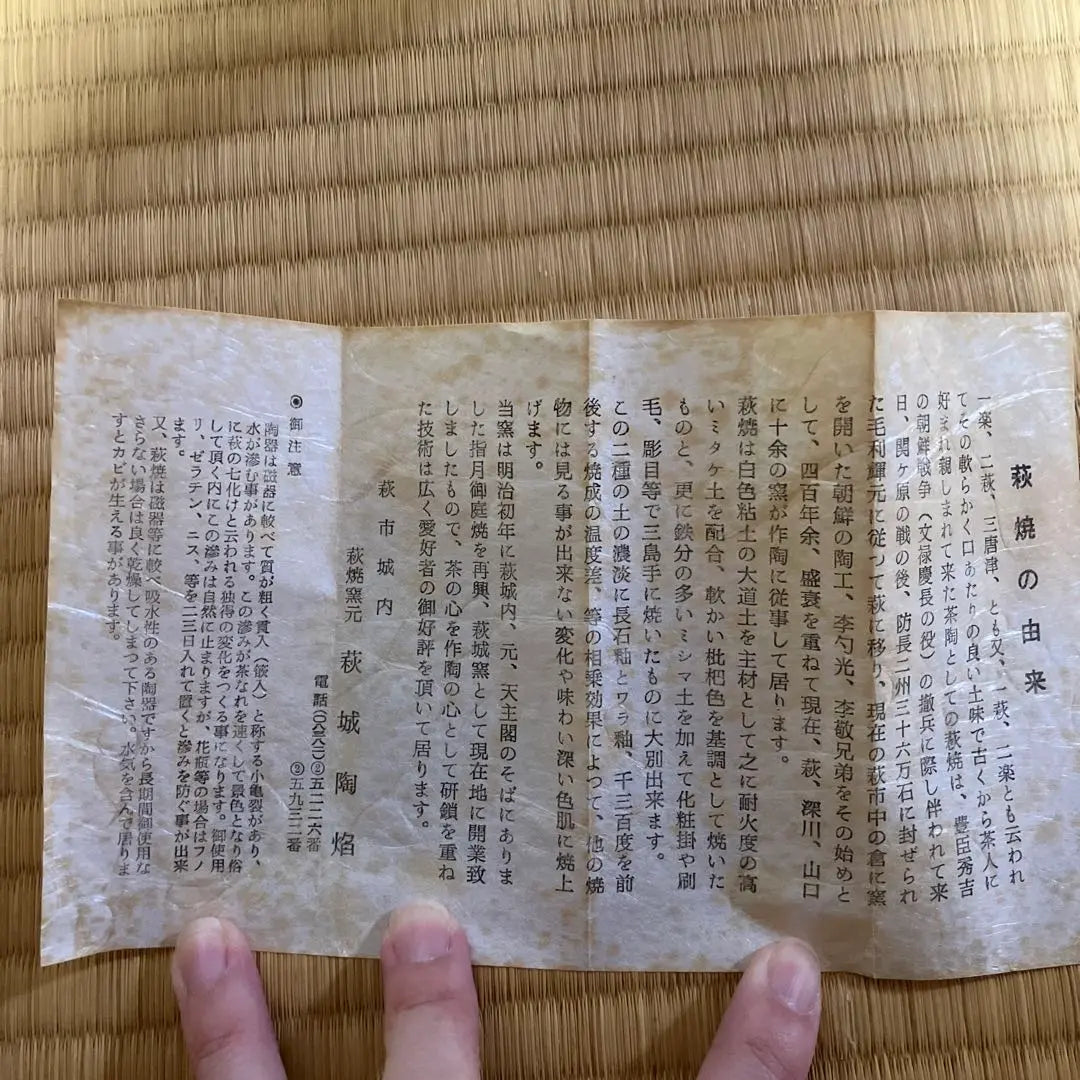 萩焼の由来
一楽、二萩、三唐津、とも又、一萩、二楽とも云われ
てその軟らかく口あたりの良い土味で古くから茶人に
好まれ親しまれて来た茶陶としての萩焼は、豊臣秀吉
の朝鮮戦争(文禄慶長の役)の撤兵に際し伴われて来
日、関ヶ原の戦の後、防長二州三十六万石に封ぜられ
た毛利輝元に従つて萩に移り、現在の萩市中の倉に窯
を開いた朝鮮の陶工、李勺光、李敬兄弟をその始めと
して、四百年余、盛衰を重ねて現在、萩、深川、山口
に十余の窯が作陶に従事して居ります。
萩焼は白色粘土の大道土を主材として之に耐火度の高
いミタケ土を配合、軟かい枇杷色を基調として焼いた
ものと、更に鉄分の多いミシマ土を加えて化粧掛や刷
毛、彫目等で三島手に焼いたものに大別出来ます。
この二種の土の濃淡に長石釉とワラ釉、千三百度を前
後する焼成の温度差、等の相乗効果によつて、他の焼
物には見る事が出来ない変化や味わい深い色肌に焼上
げます。
当窯は明治初年に萩城内、元、天主閣のそばにありま
した指月御庭焼を再興、萩城窯として現在地に開業致
しましたもので、茶の心を作陶の心として研鎖を重ね
た技術は広く愛好者の御好評を頂いて居ります。
萩市城内
萩焼窯元 萩城陶焰
電話〇八三八二②五二二六番
②五九三二番
◉御注意
陶器は磁器に較べて質が粗く貫入(篏入)と称する小亀裂があり、
水が滲む事があります。この滲みが茶なれを速くして景色となり俗
に萩の七化けと云われる独得の変化をつくる事になります。御使用
して頂く内にこの滲みは自然に止まりますが、花瓶等の場合はフノ
リ、ゼラチン、ニス、等を二三日入れて置くと滲みを防ぐ事が出来
ます。
又、萩焼は磁器等に較べ吸水性のある陶器ですから長期間御使用な
さらない場合は良く乾燥してしまつて下さい。水気を含んで居りま
すとカビが生える事があります。